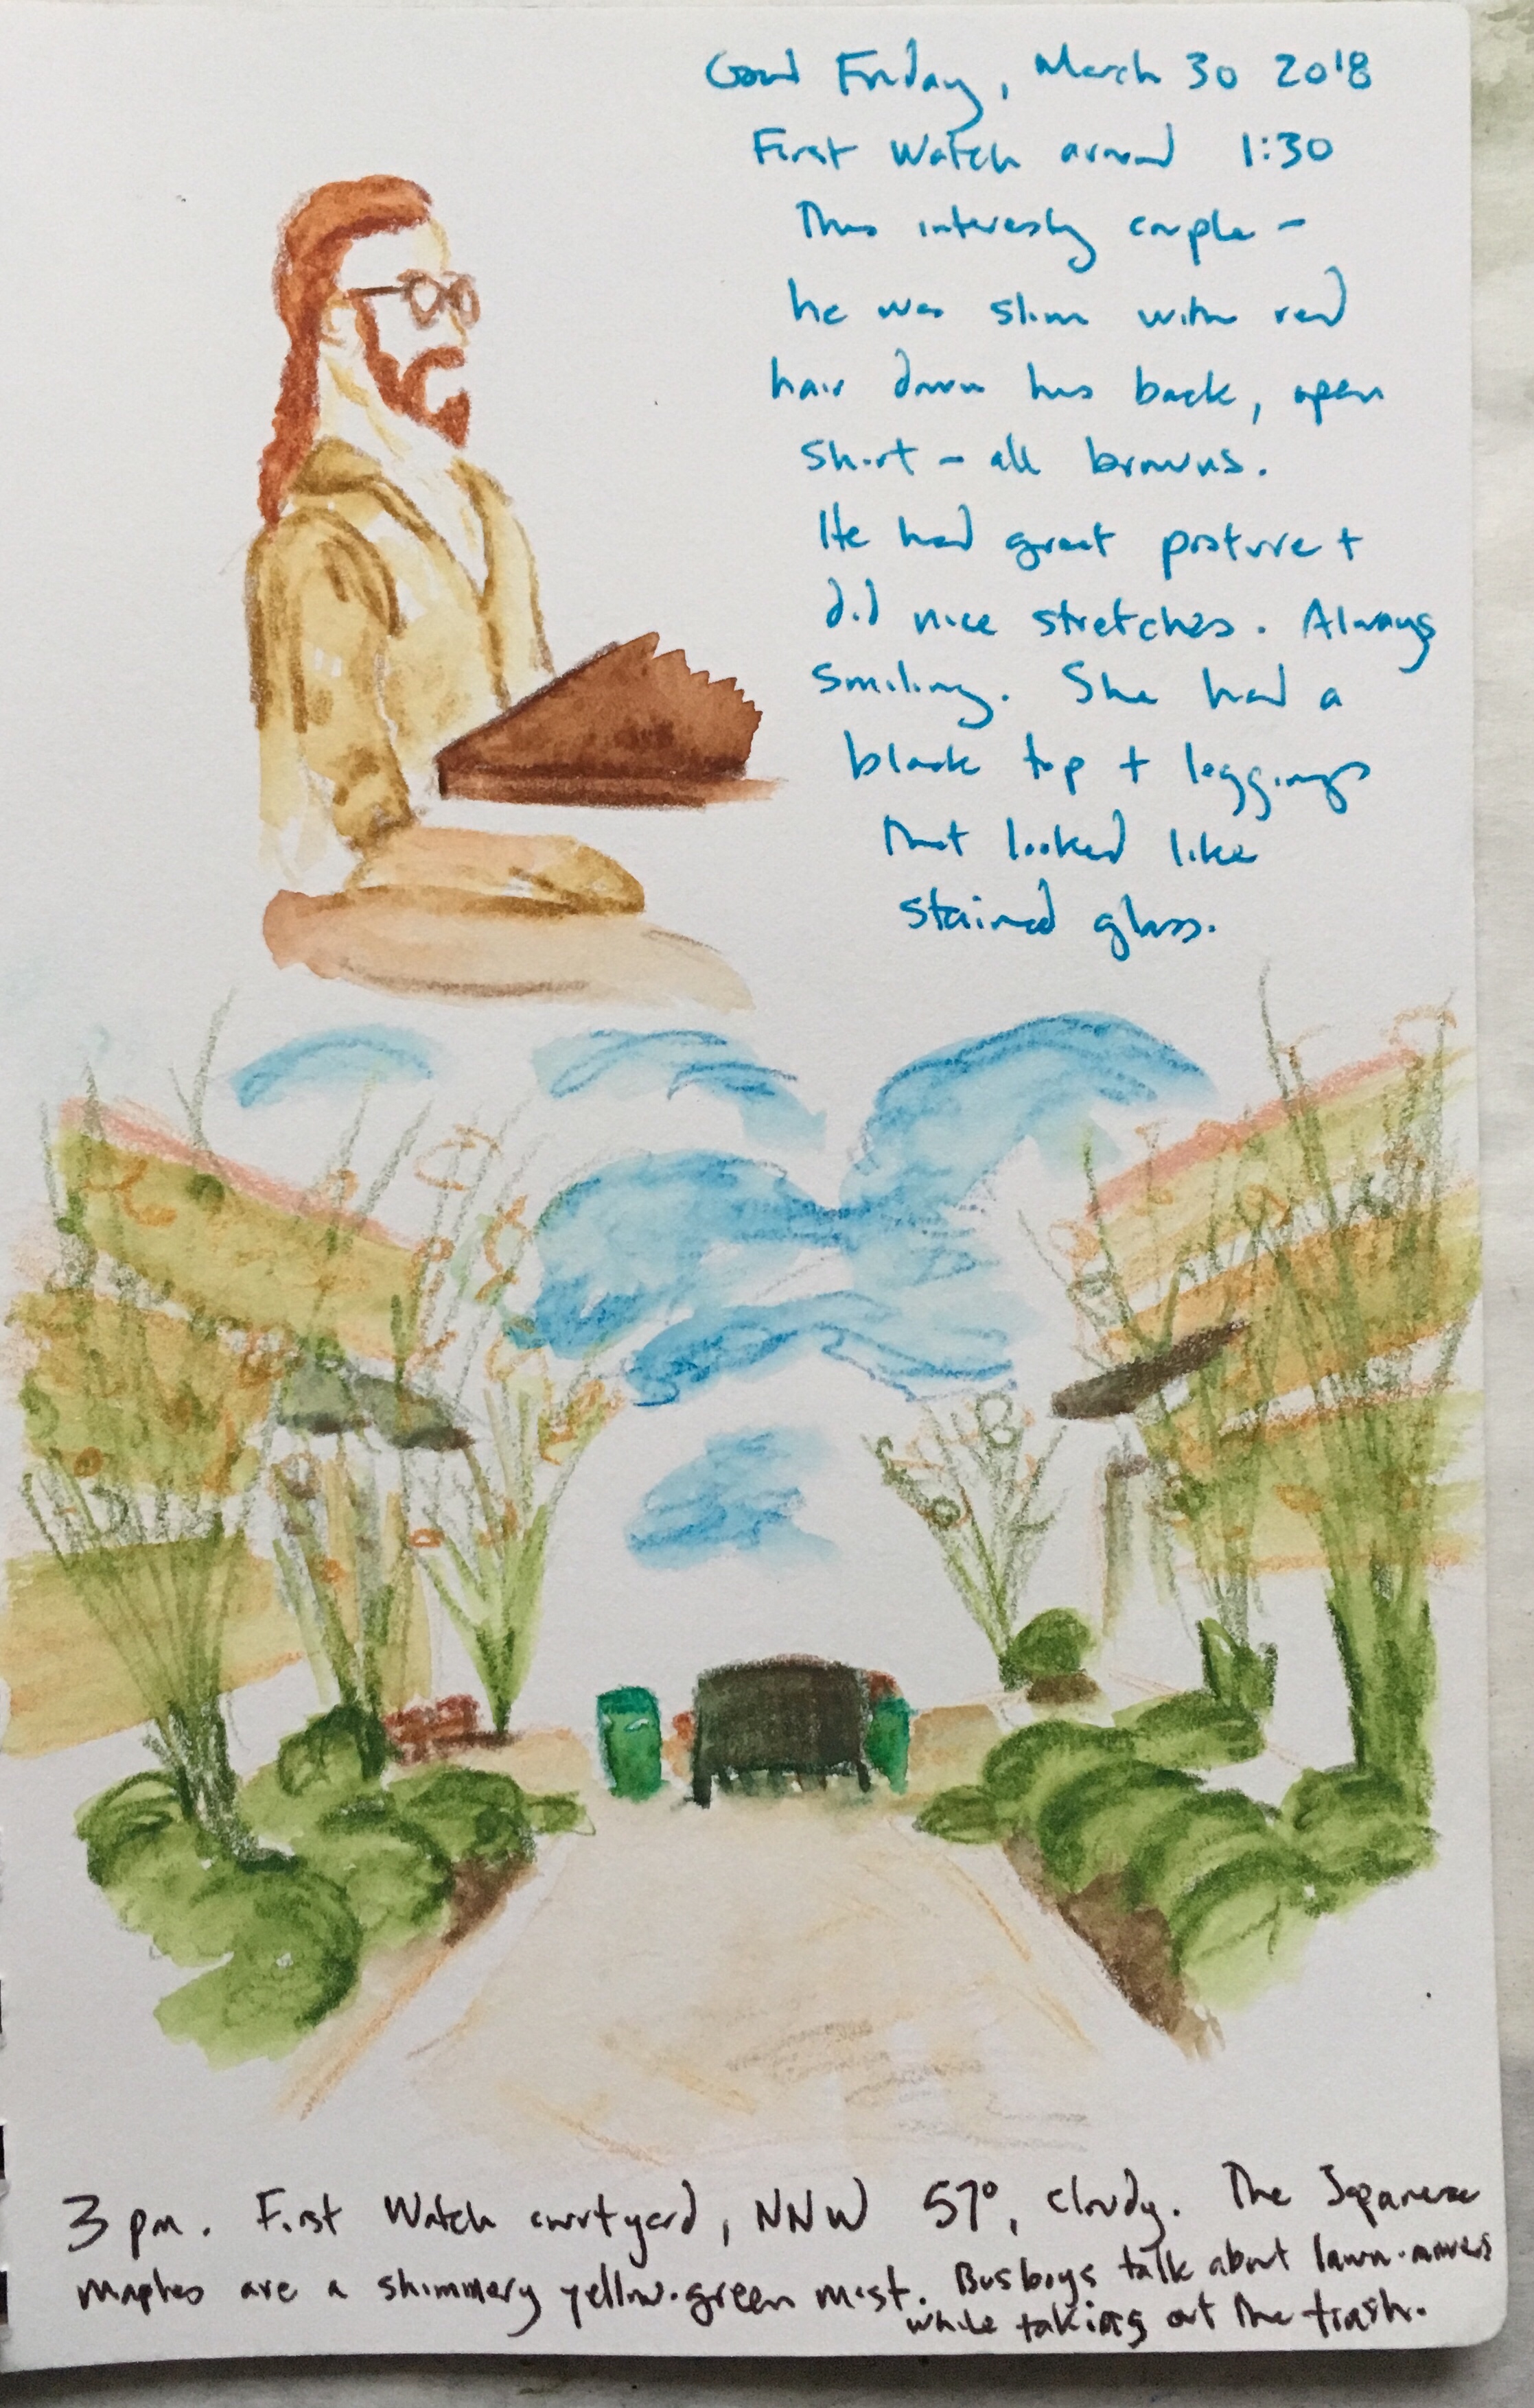 Good Friday, March 30 2018
First Watch around 1:30
This interesting couple –
he was slim with red
hair down his back, open
shirt – all browns.
He had great posture +
did nice stretches. Always
smiling. She had a
black top + leggings
that looked like
stained glass.
3 pm. First Watch courtyard, NNW 57°, cloudy. The Japanese
maples are a shimmery yellow-green mist. Busboys talk about lawn-mowers
while taking out the trash.